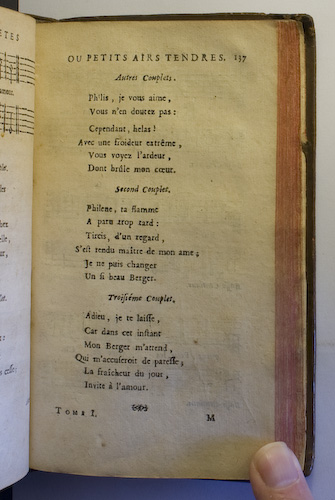 OU PETITS AIRS TENDRES. 137
Autres Couplets.
Philis, je vous aime,
Vous n'en doutez pas:
Cependant, helas!
Avec une froideur extrême,
Vous voyez l'ardeur,
Dont brûle mon cœur.
Second Couplet.
Philene, ta flamme
A paru trop tard:
Tircis, d'un regard,
S'est rendu maître de mon ame;
Je ne puis changer
Un si beau Berger.
Troisiéme Couplet.
Adieu, je te laisse,
Car dans cet instant
Mon Berger m'attend,
Qui m'accuseroit de paresse;
La fraîcheur du jour,
Invite à l'amour.
TOME I.
M